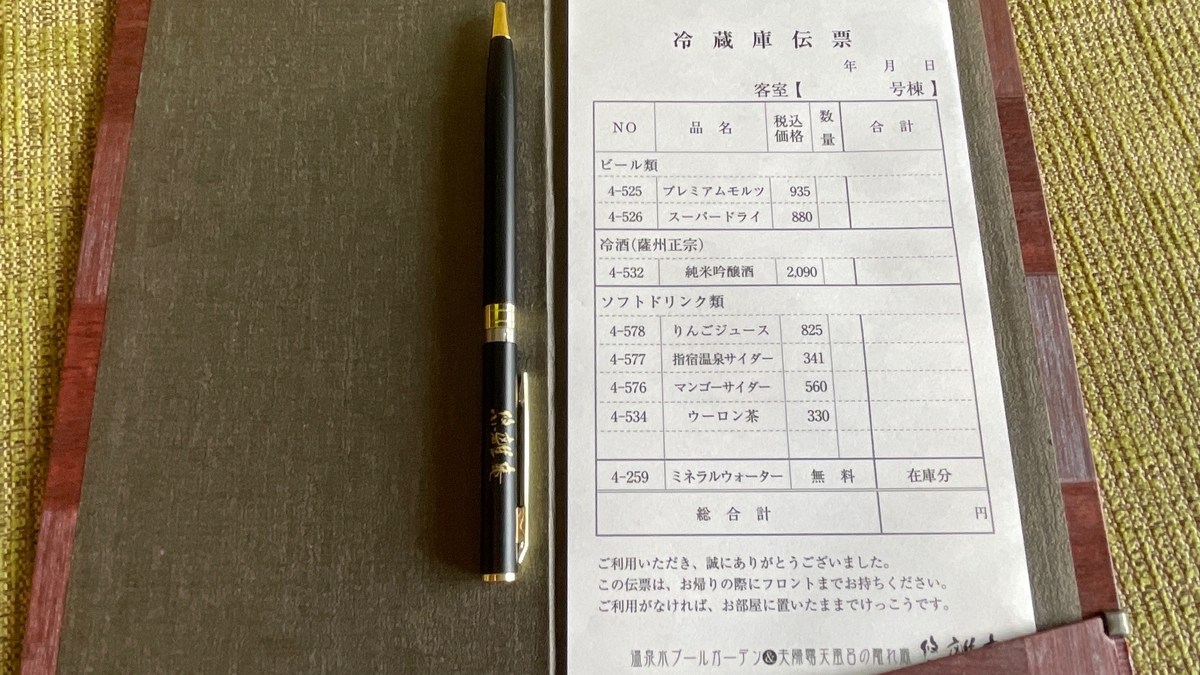 冷蔵庫伝票
年 月 日
客室【 号棟】
NO 品名 税込価格 数量 合計
ビール類
4-525 プレミアムモルツ 935
4-526 スーパードライ 880
冷酒(薩州正宗)
4-532 純米吟醸酒 2,090
ソフトドリンク類
4-578 りんごジュース 825
4-577 指宿温泉サイダー 341
4-576 マンゴーサイダー 560
4-534 ウーロン茶 330
4-259 ミネラルウォーター 無料 在庫分
総合計 円
ご利用いただき、誠にありがとうございました。
この伝票は、お帰りの際にフロントまでお持ちください。
ご利用がなければ、お部屋に置いたままでけっこうです。
温泉水プールガーデン&夫婦露天風呂の離れ宿